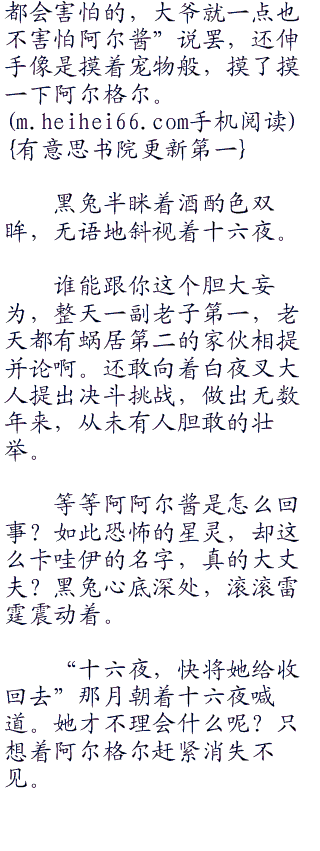 都会害怕的，大爷就一点也
不害怕阿尔酱”说罢，还伸
手像是摸着宠物般，摸了摸
一下阿尔格尔。
(m.heihei66.com手机阅读)
{有意思书院更新第一}
黑兔半眯着酒酌色双
眸，无语地斜视着十六夜。
谁能跟你这个胆大妄
为，整天一副老子第一，老
天都有蜗居第二的家伙相提
并论啊。还敢向着白夜叉大
人提出决斗挑战，做出无数
年来，从未有人胆敢的壮
举。
等等阿阿尔酱是怎么回
事？如此恐怖的星灵，却这
么卡哇伊的名字，真的大丈
夫？黑兔心底深处，滚滚雷
霆震动着。
“十六夜，快将她给收
回去”那月朝着十六夜喊
道。她才不理会什么呢？只
想着阿尔格尔赶紧消失不
见。